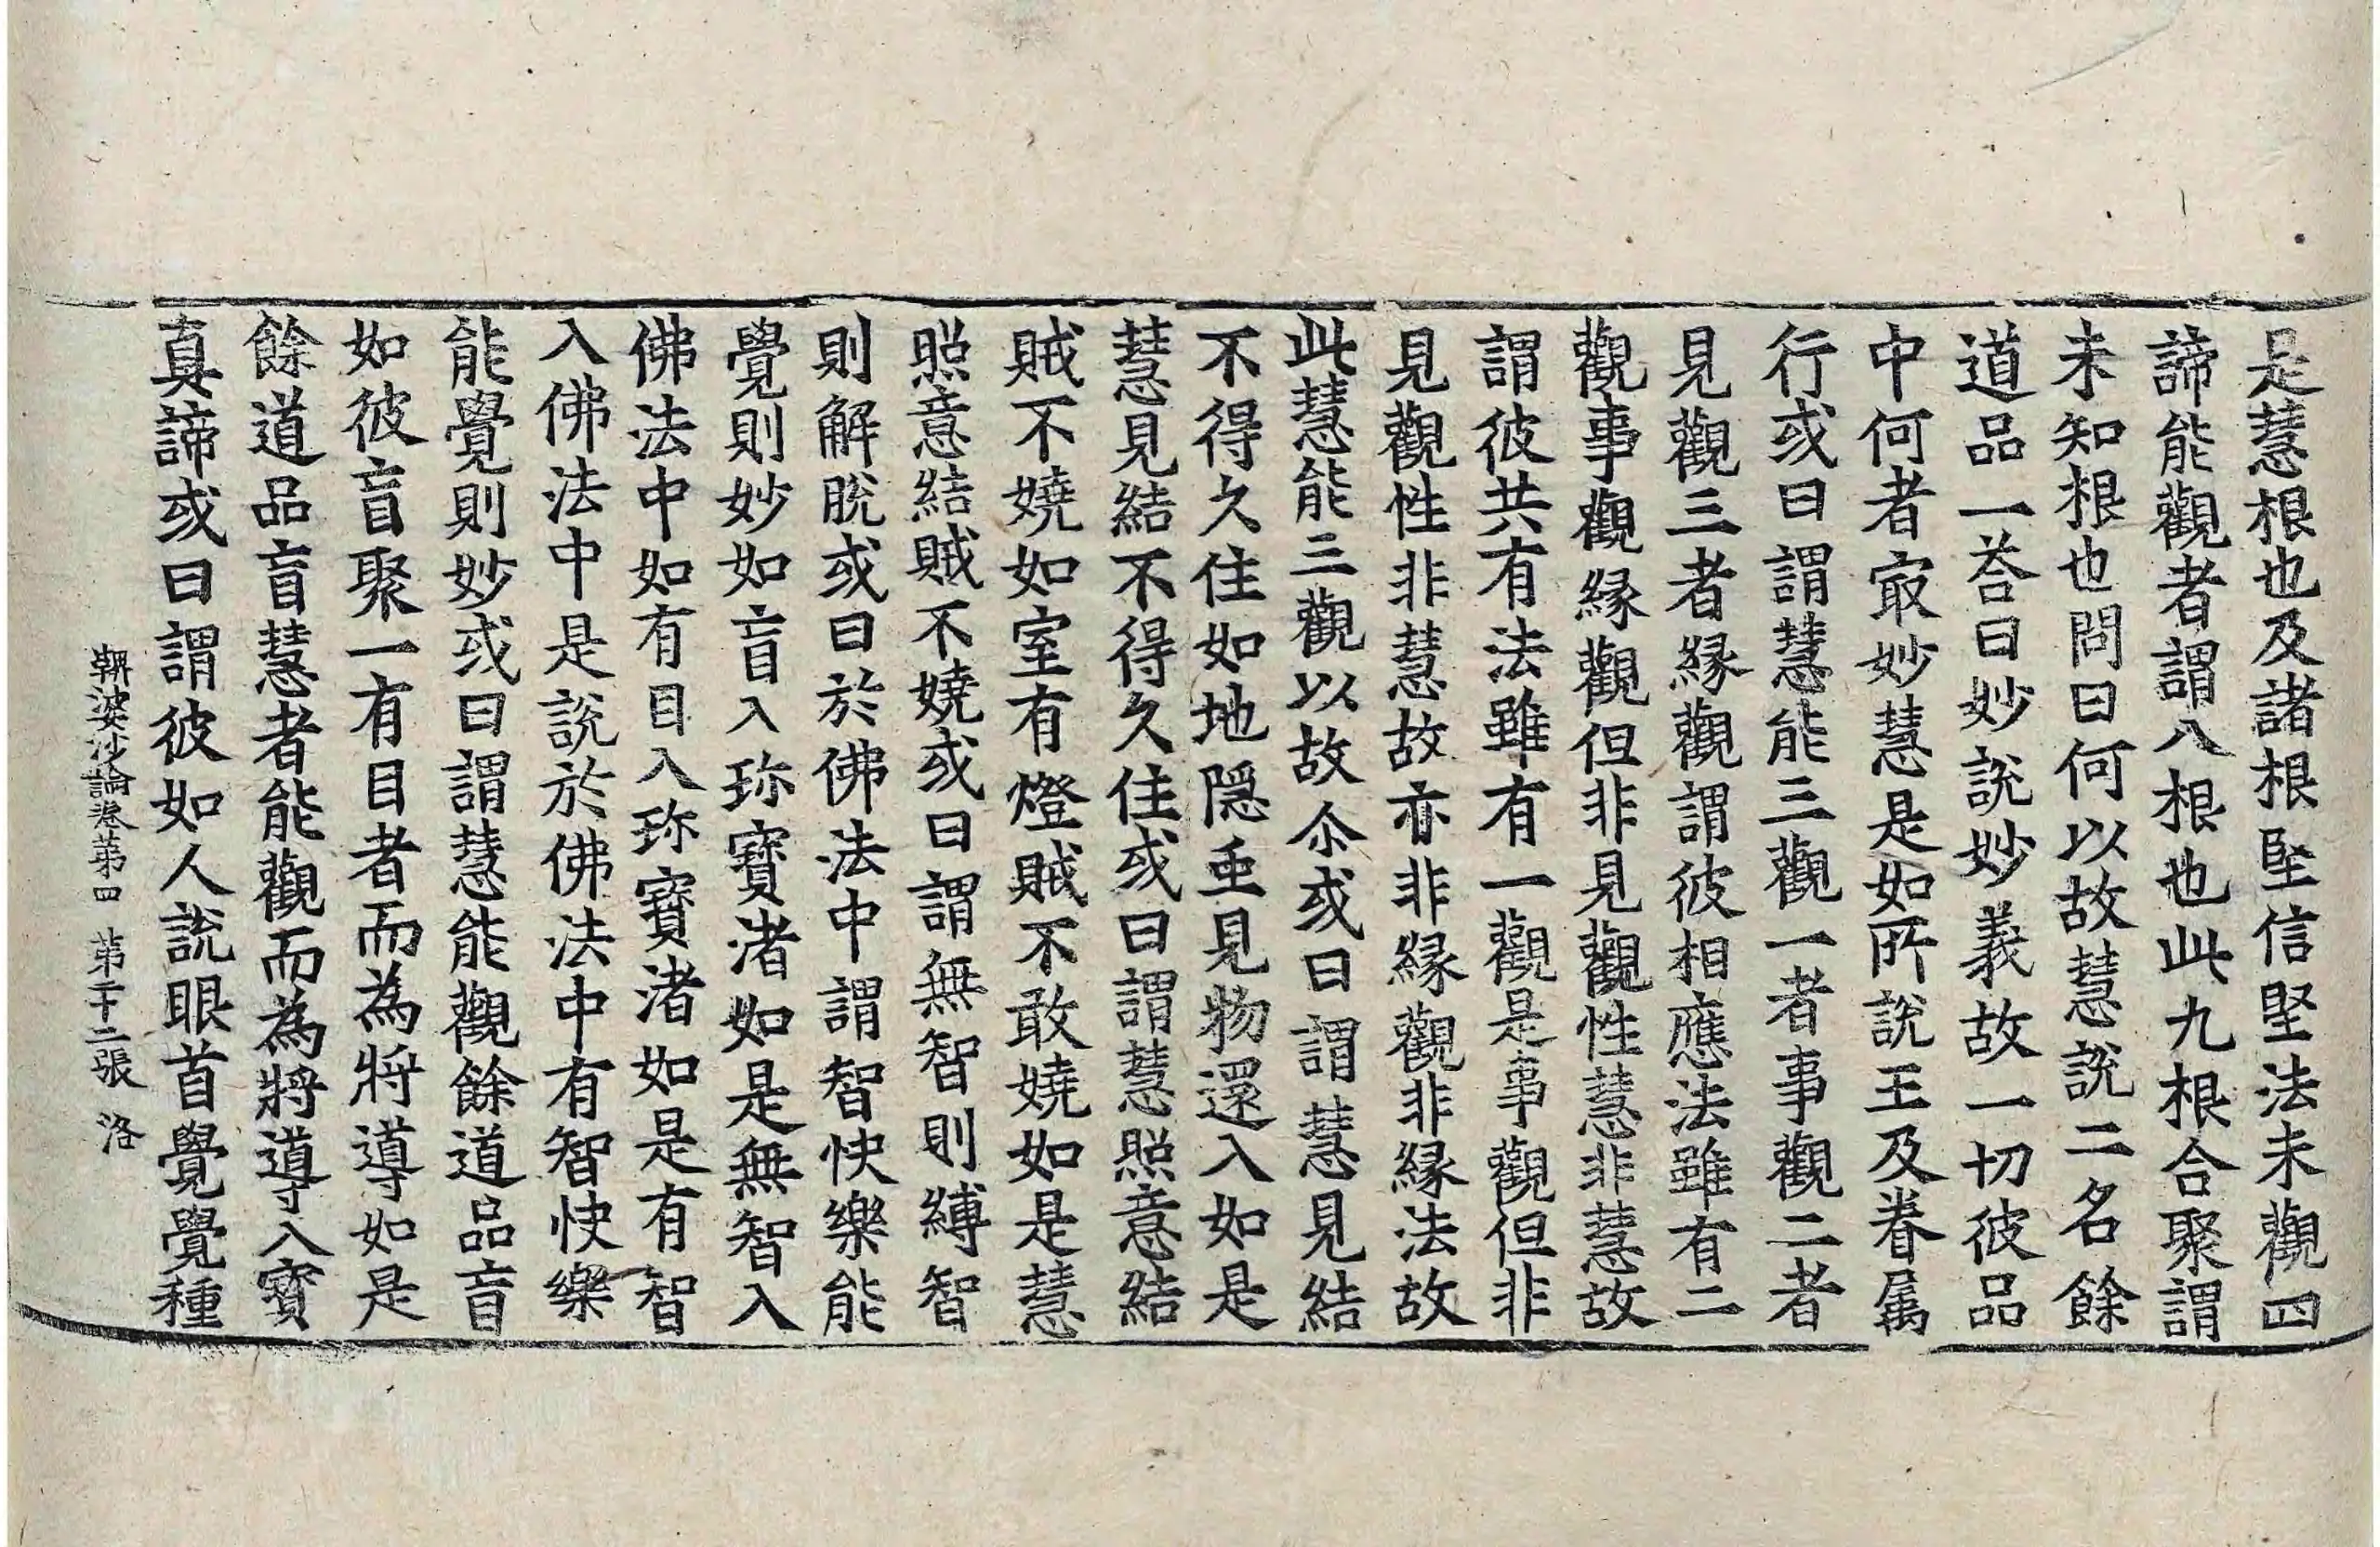 是慧根也及諸根堅信堅法未觀四
諦能觀者謂八根也此九根合聚謂
未知根也問曰何以故慧說二名餘
道品一荅曰妙說妙義故一切彼品
中何者㝡妙慧是如所說王及眷属
行或曰謂慧能三觀一者事觀二者
見觀三者縁觀謂彼相應法雖有二
觀事觀縁觀但非見觀性慧非慧故
謂彼共有法雖有一觀是事觀但非
見觀性非慧故亦非縁觀非縁法故
此慧能三觀以故尒或曰謂慧見結
不得久住如地隠虫見物還入如是
慧見結不得久住或曰謂慧照意結
賊不嬈如室有燈賊不敢嬈如是慧
照意結賊不嬈或曰謂無智則縛智
則解脫或曰於佛法中謂智快樂能
覺則妙如盲入珎寶渚如是無智入
佛法中如有目入珎寶渚如是有智
入佛法中是說於佛法中有智快樂
能覺則妙或曰謂慧能觀餘道品盲
如彼盲聚一有目者而為將導如是
餘道品盲慧者能觀而為將導入寶
真諦或曰謂彼如人說眼首覺覺種
鞞婆沙論卷第四　第二十二張　洛